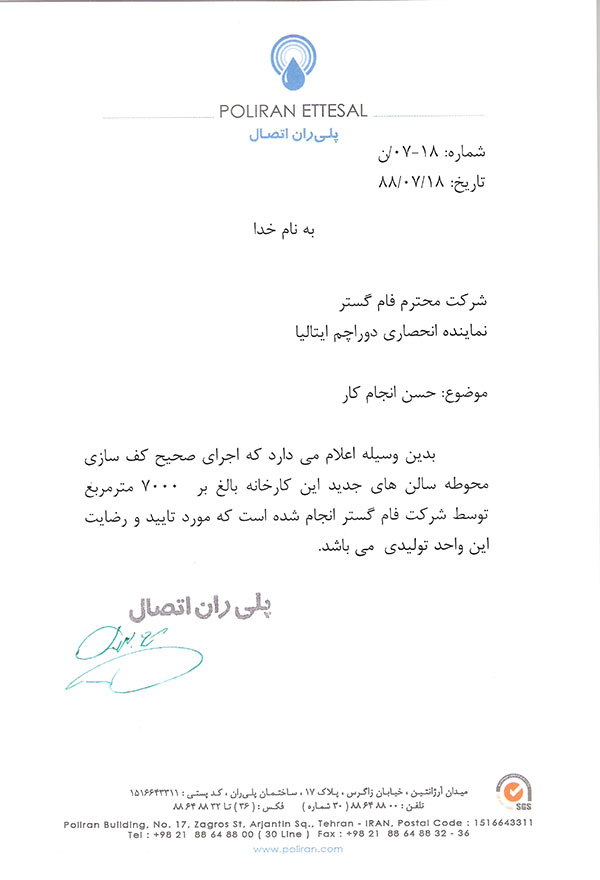 POLIRAN ETTESAL
پلی‌ران اتصال
شماره: ۱۸-۰۷/ن
تاریخ: ۸۸/۰۷/۱۸
به نام خدا
شرکت محترم فام گستر
نماینده انحصاری دوراچم ایتالیا
موضوع: حسن انجام کار
بدین وسیله اعلام می دارد که اجرای صحیح کف سازی
محوطه سالن های جدید این کارخانه بالغ بر ۷۰۰۰ مترمربع
توسط شرکت فام گستر انجام شده است که مورد تایید و رضایت
این واحد تولیدی می باشد.
پلی ران اتصال
میدان آرژانتین ، خیابان زاگرس ، پلاک ۱۷ ، ساختمان پلی‌ران ، کد پستی : ۱۵۱۶۶۴۳۳۱۱
تلفن : ۸۸ ۶۴ ۸۸ ۰۰ ( ۳۰ شماره ) فکس : ( ۳۶ ) تا ۳۲ ۸۸ ۶۴ ۸۸
SGS
Poliran Building, No. 17, Zagros St, Arjantin Sq., Tehran - IRAN, Postal Code : 1516643311
Tel : +98 21 88 64 88 00 ( 30 Line ) Fax : +98 21 88 64 88 32 - 36
www.poliran.com